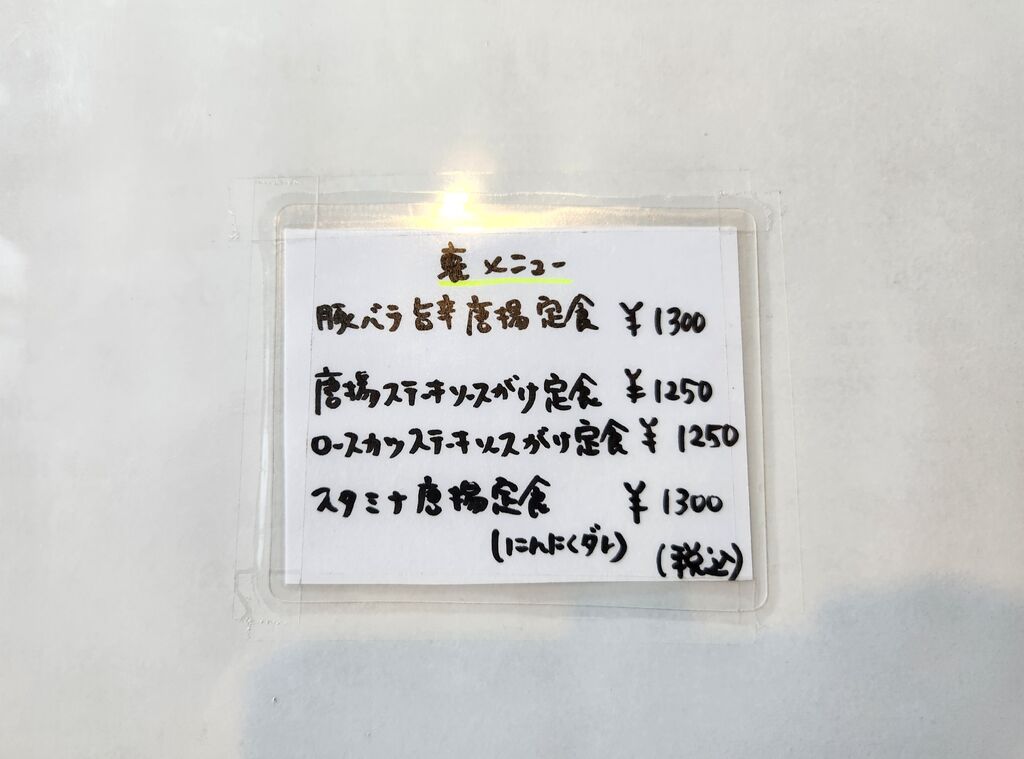 裏メニュー
豚バラ旨辛唐揚定食 ¥1300
唐揚ステーキソースがけ定食 ¥1250
ロースカツステーキソースがけ定食 ¥1250
スタミナ唐揚定食 ¥1300
(にんにくダレ) (税込)